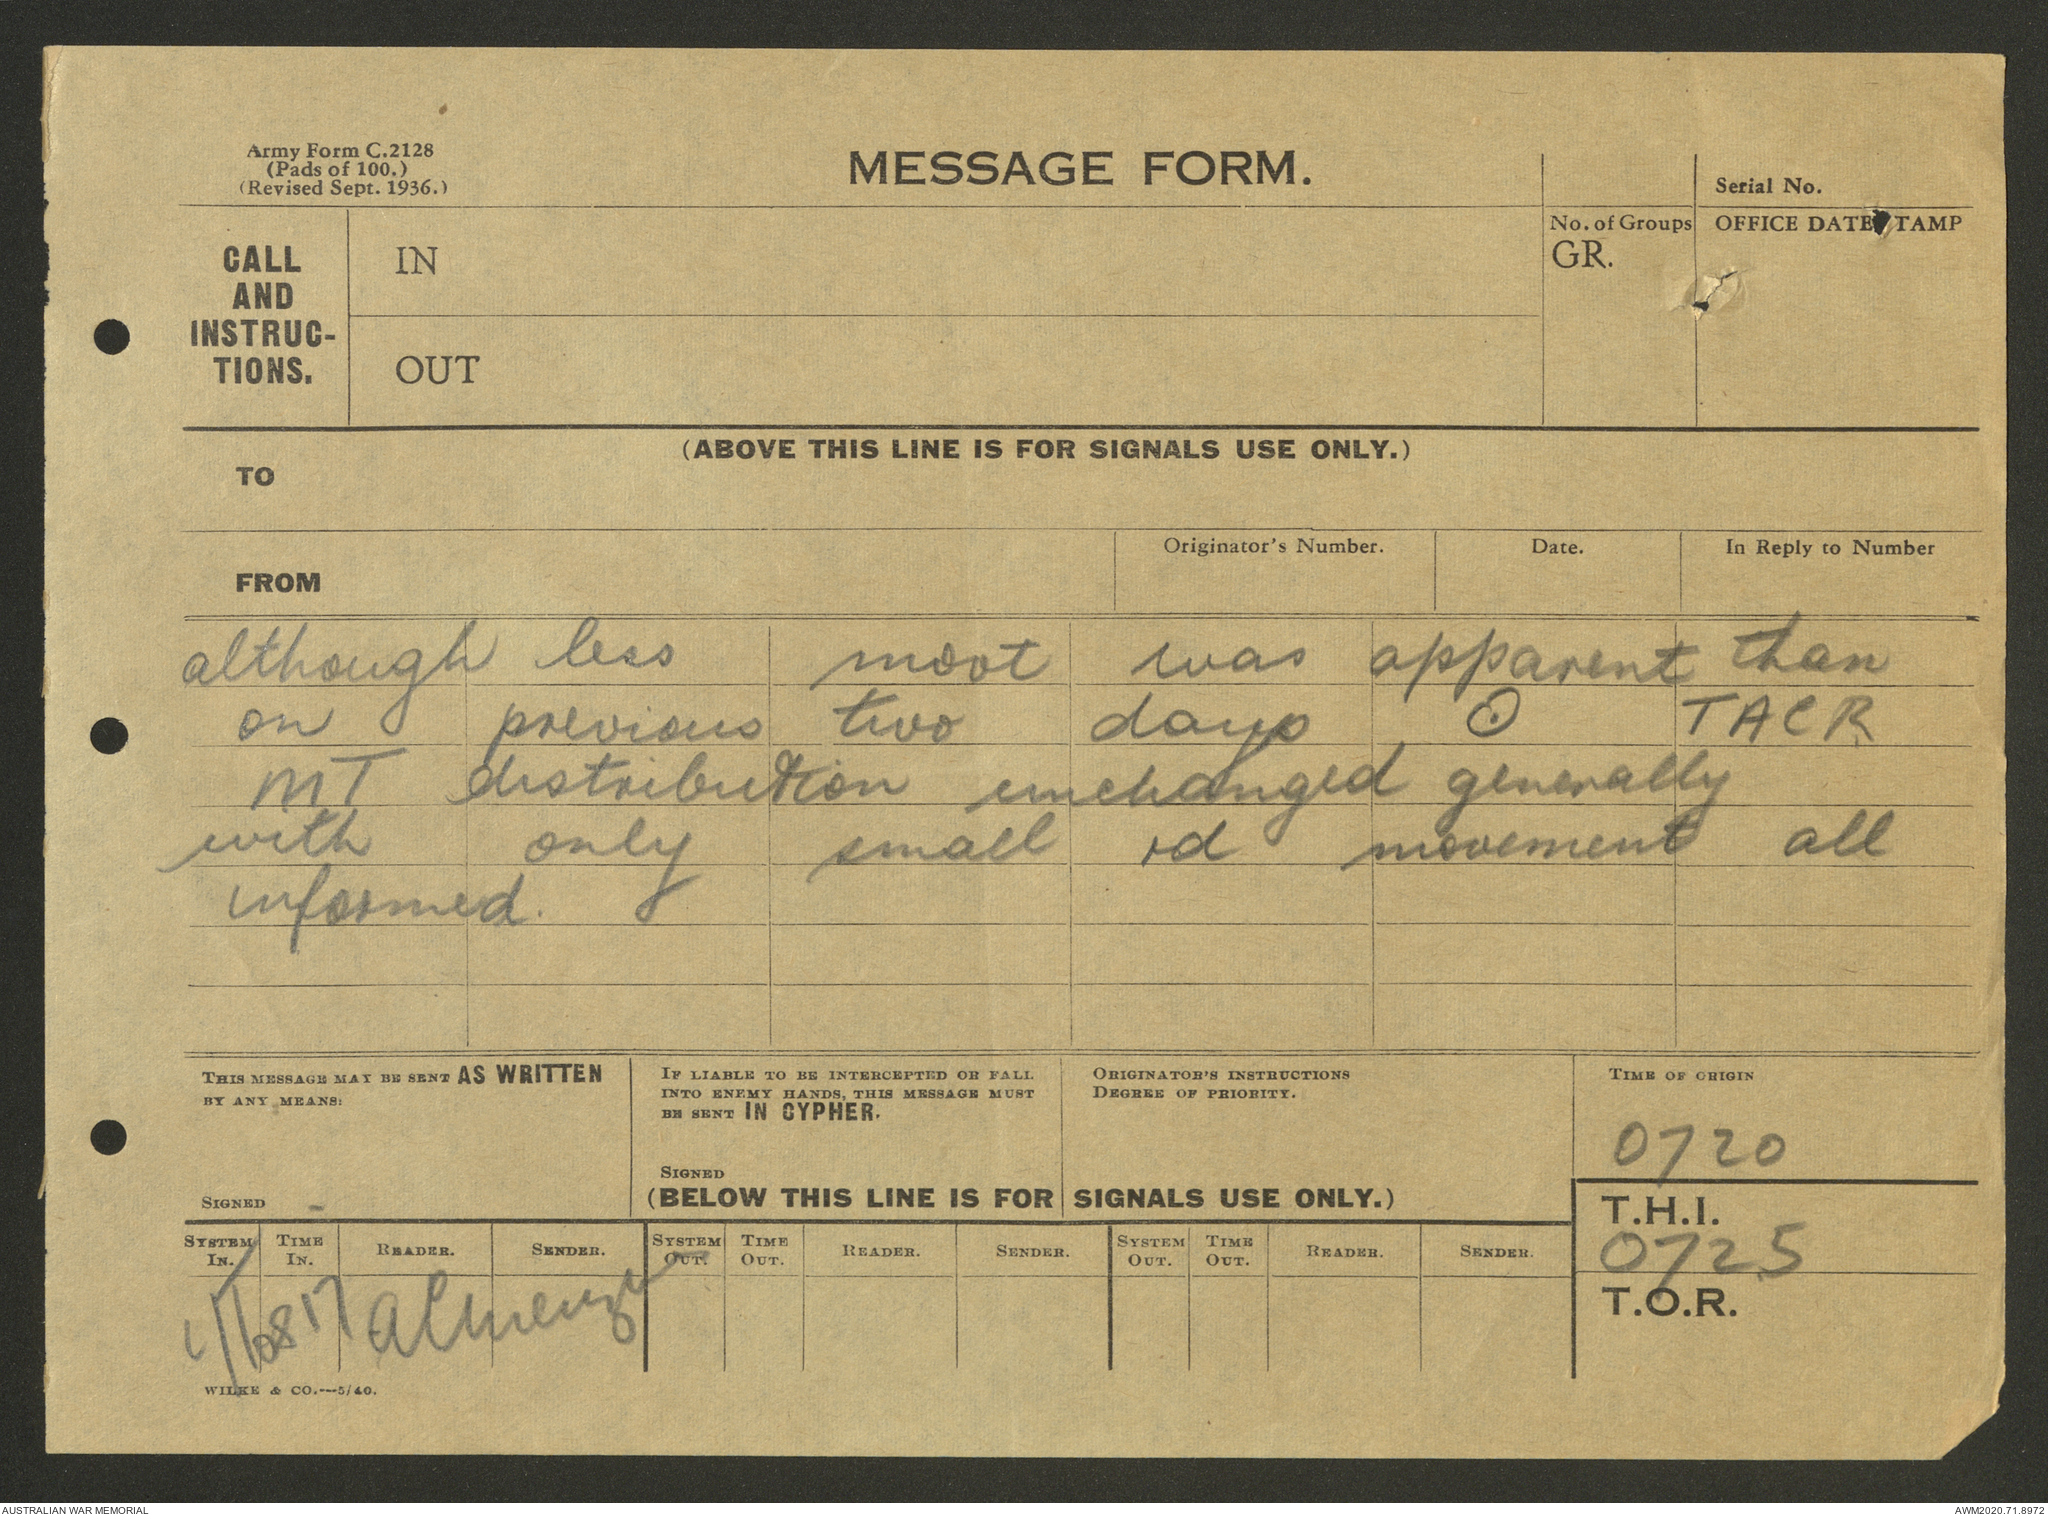 Army Form C.2128
(Pads of 100.)
(Revised Sept. 1936.)
MESSAGE FORM.
Serial No.
CALL
AND
INSTRUC-
TIONS.
IN
OUT
No. of Groups
GR.
OFFICE DATE TAMP
(ABOVE THIS LINE IS FOR SIGNALS USE ONLY.)
TO
FROM
Originator's Number.
Date.
In Reply to Number
although less movt was apparent than
on previous two days ⊙ TACR
MT distribution unchanged generally
with only small rd movement all
informed.
THIS MESSAGE MAY BE SENT AS WRITTEN
BY ANY MEANS:
SIGNED
IF LIABLE TO BE INTERCEPTED OR FALL
INTO ENEMY HANDS, THIS MESSAGE MUST
BE SENT IN CYPHER.
SIGNED
ORIGINATOR'S INSTRUCTIONS
DEGREE OF PRIORITY.
TIME OF ORIGIN
0720
(BELOW THIS LINE IS FOR SIGNALS USE ONLY.)
T.H.I.
0725
T.O.R.
SYSTEM IN. TIME IN. READER. SENDER. SYSTEM OUT. TIME OUT. READER. SENDER. SYSTEM OUT. TIME OUT. READER. SENDER.
WILKE & CO.—5/40.
AUSTRALIAN WAR MEMORIAL
AWM2020.71.8972